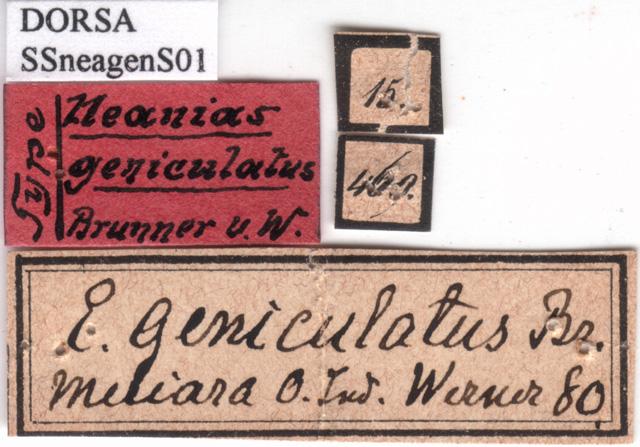 DORSA
SSneagenS01
Type
Neanias
geniculatus
Brunner v. W.
15.
E. geniculatus Br.
O. Ind. Werner 80.